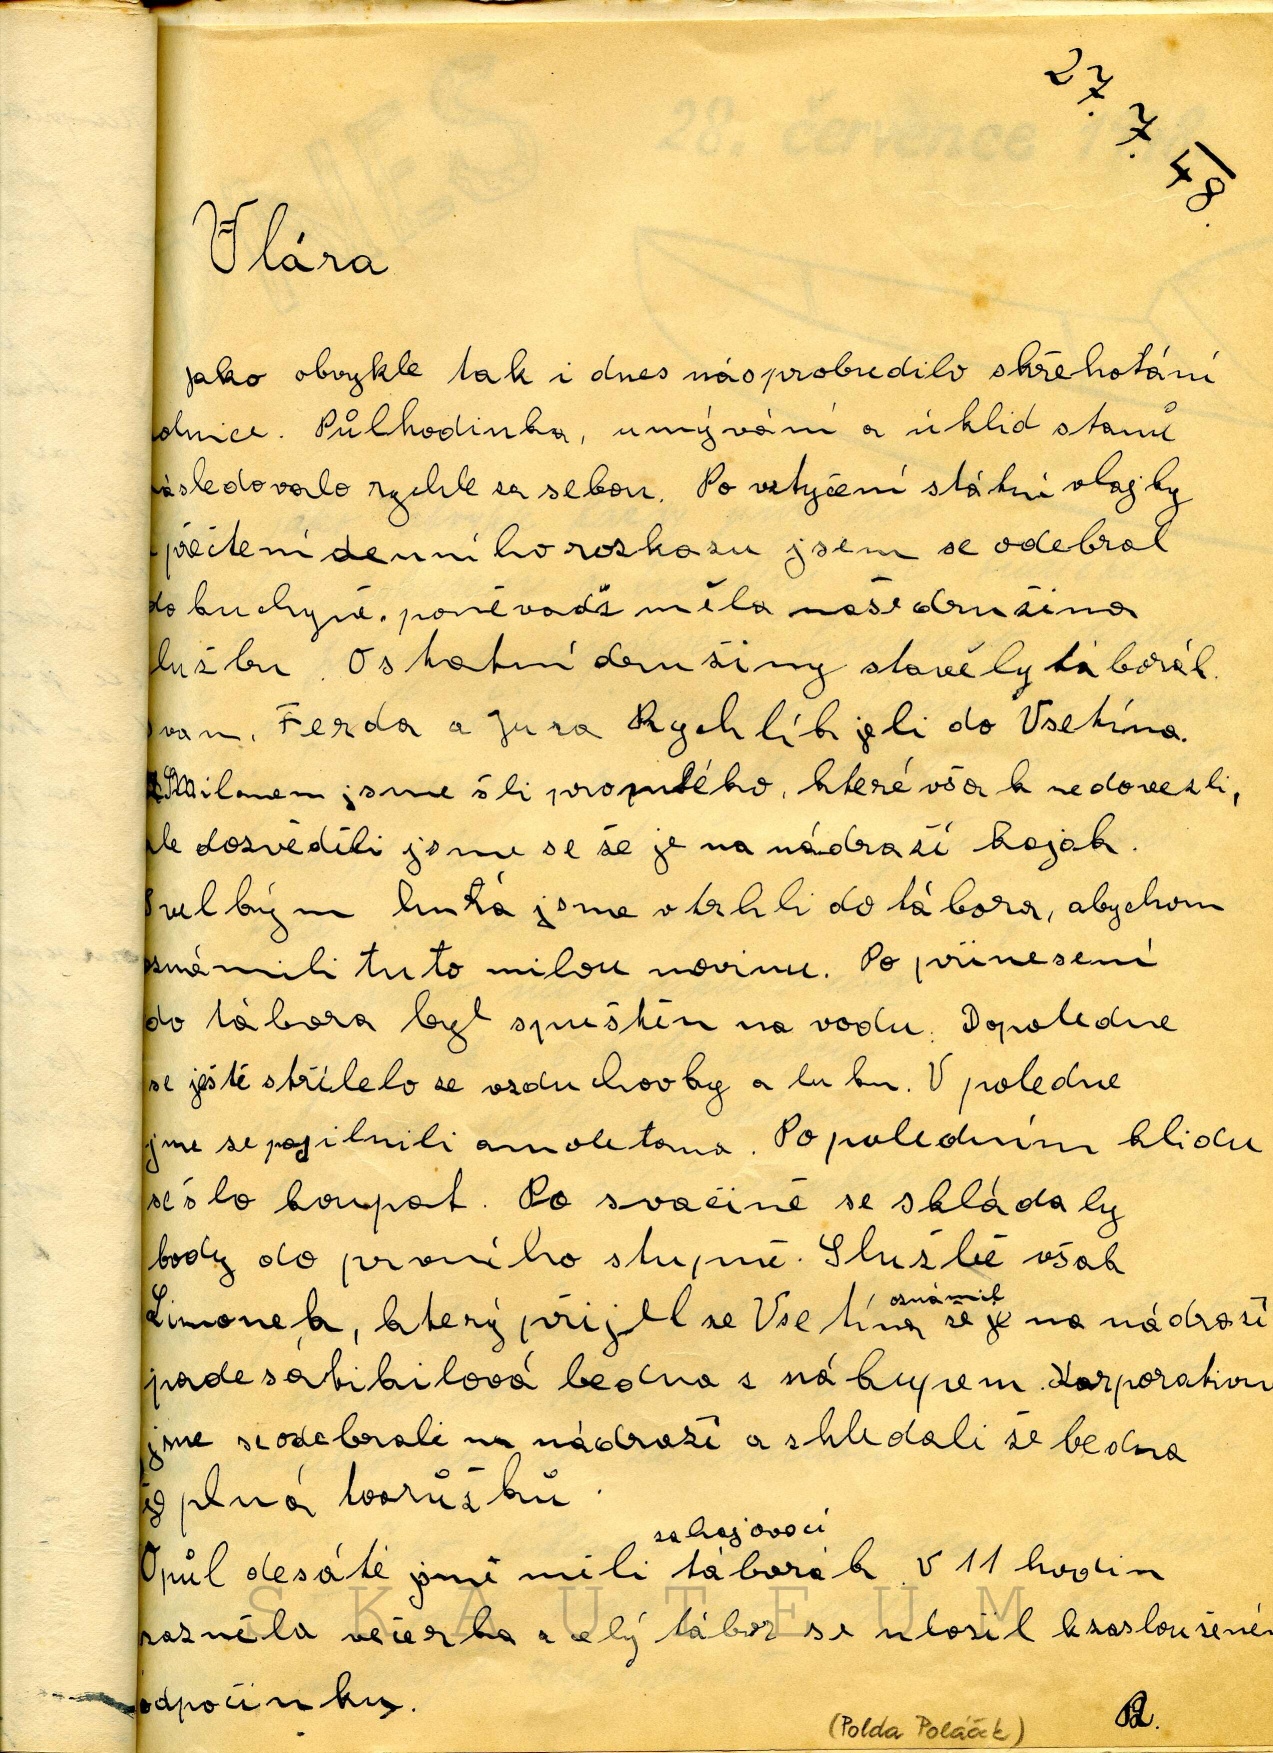 27. 7. 48.
Vlára
Jako obvykle tak i dnes nás probudilo skřehotání
polnice. Půlhodinka, umývání a úklid stanů
následovalo rychle za sebou. Po vztyčení státní vlajky
přečtení denního rozkazu jsem se odebral
do kuchyně, poněvadž měla naše družina
službu. Ostatní družiny stavěly táborák.
Ivan, Ferda a Jura Rychlík jeli do Vsetína.
S Milanem jsme šli pro mléko, které však nedovezli,
ale dozvěděli jsme se že je na nádraží kajak.
S velkým hurá jsme vtrhli do tábora, abychom
oznámili tuto milou novinu. Po přinesení
do tábora byl spuštěn na vodu. Dopoledne
se ještě střílelo ze vzduchovky a luku. V poledne
jme se posilnili omeletama. Po poledním klidu
se šlo koupat. Po svačině se skládaly
body do prvního stupně. Službě však
oznámil
Limonek, který přijel ze Vsetína že je na nádraží
padesátikilová bedna s nákupem. Korporativně
jsme se odebrali na nádraží a shledali že bedna
je plná tvarůžků.
zahajovací
O půl desáté jsme měli táborák. V 11 hodin
zazněla večerka a celý tábor se uložil k zaslouženém
odpočinku.
(Polda Poláček)
SKAUTEUM